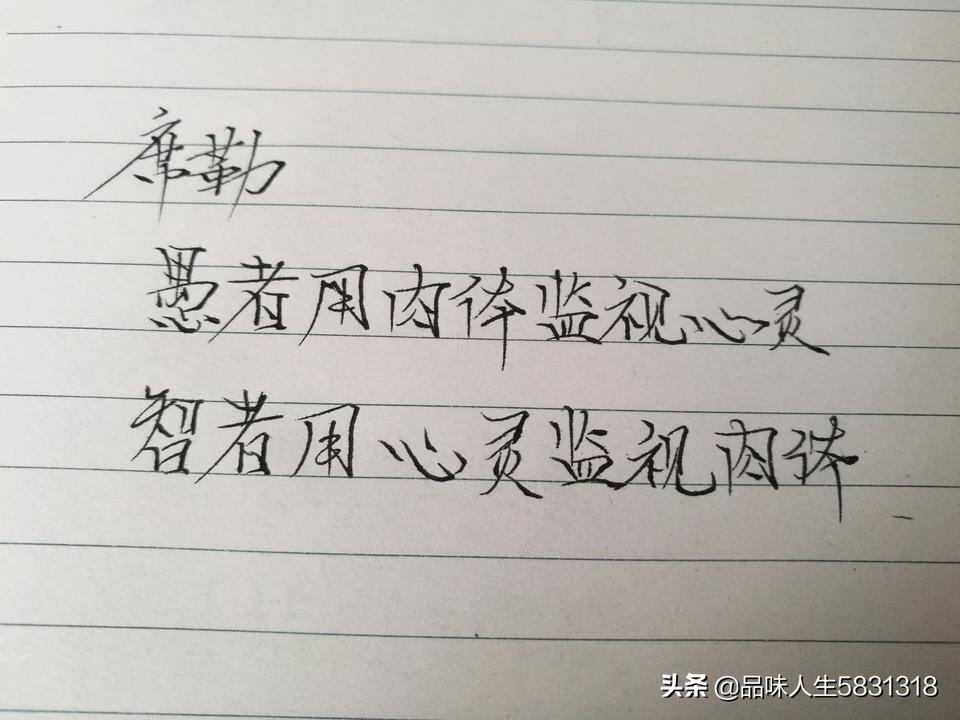 席勒
愚者用肉体监视心灵
智者用心灵监视肉体
头条 @品味人生5831318